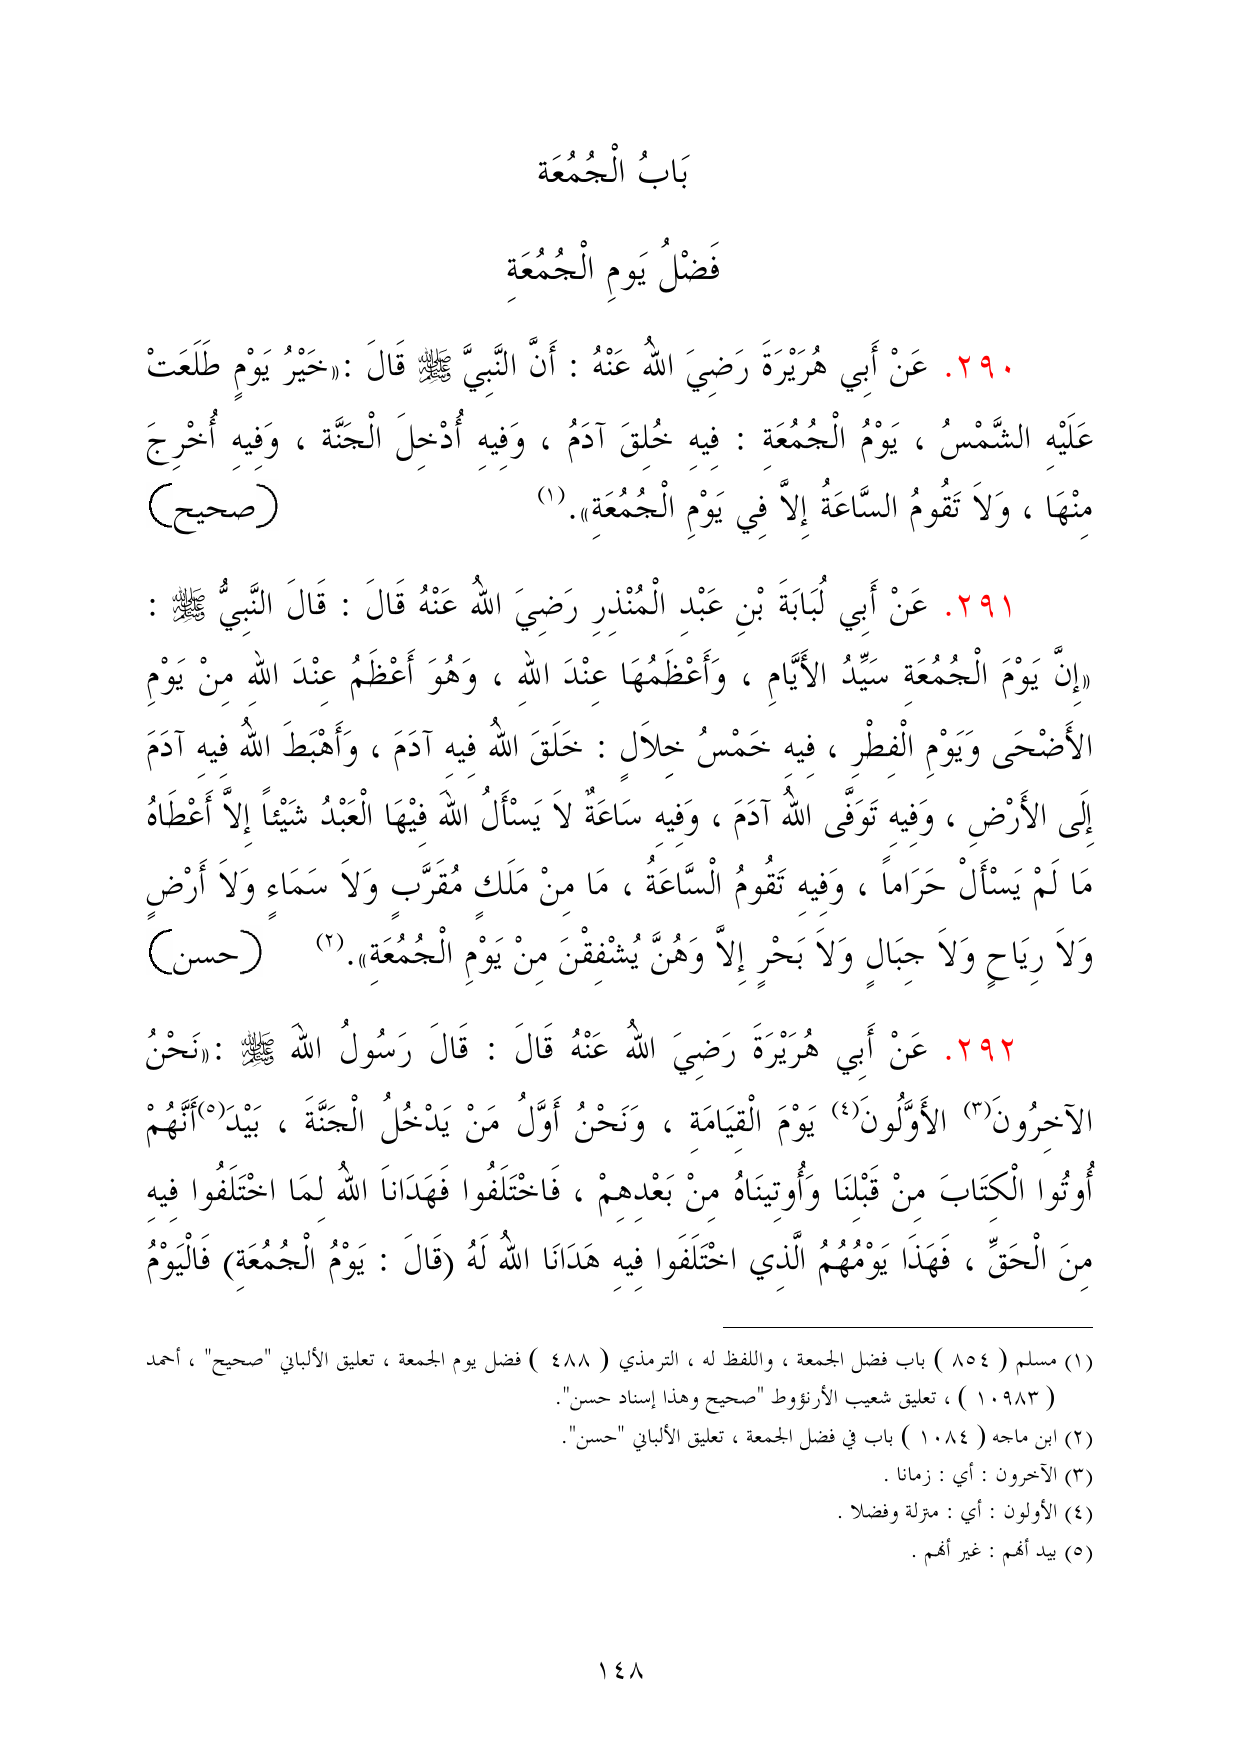 بَابُ الْجُمُعَة
فَضْلُ يَومِ الْجُمُعَةِ
٢٩٠. عَنْ أَبِي هُرَيْرَةَ رَضِيَ اللهُ عَنْهُ : أَنَّ النَّبِيَّ ﷺ قَالَ :«خَيْرُ يَوْمٍ طَلَعَتْ
عَلَيْهِ الشَّمْسُ ، يَوْمُ الْجُمُعَةِ : فِيهِ خُلِقَ آدَمُ ، وَفِيهِ أُدْخِلَ الْجَنَّة ، وَفِيهِ أُخْرِجَ
مِنْهَا ، وَلاَ تَقُومُ السَّاعَةُ إِلاَّ فِي يَوْمِ الْجُمُعَةِ».(١) (صحيح)
٢٩١. عَنْ أَبِي لُبَابَةَ بْنِ عَبْدِ الْمُنْذِرِ رَضِيَ اللهُ عَنْهُ قَالَ : قَالَ النَّبِيُّ ﷺ :
«إِنَّ يَوْمَ الْجُمُعَةِ سَيِّدُ الأَيَّامِ ، وَأَعْظَمُهَا عِنْدَ اللهِ ، وَهُوَ أَعْظَمُ عِنْدَ اللهِ مِنْ يَوْمِ
الأَضْحَى وَيَوْمِ الْفِطْرِ ، فِيهِ خَمْسُ خِلاَلٍ : خَلَقَ اللهُ فِيهِ آدَمَ ، وَأَهْبَطَ اللهُ فِيهِ آدَمَ
إِلَى الأَرْضِ ، وَفِيهِ تَوَفَّى اللهُ آدَمَ ، وَفِيهِ سَاعَةٌ لاَ يَسْأَلُ اللهَ فِيْهَا الْعَبْدُ شَيْئاً إِلاَّ أَعْطَاهُ
مَا لَمْ يَسْأَلْ حَرَاماً ، وَفِيهِ تَقُومُ الْسَّاعَةُ ، مَا مِنْ مَلَكٍ مُقَرَّبٍ وَلاَ سَمَاءٍ وَلاَ أَرْضٍ
وَلاَ رِيَاحٍ وَلاَ جِبَالٍ وَلاَ بَحْرٍ إِلاَّ وَهُنَّ يُشْفِقْنَ مِنْ يَوْمِ الْجُمُعَةِ».(٢) (حسن)
٢٩٢. عَنْ أَبِي هُرَيْرَةَ رَضِيَ اللهُ عَنْهُ قَالَ : قَالَ رَسُولُ اللهَ ﷺ :«نَحْنُ
الآخِرُونَ(٣) الأَوَّلُونَ(٤) يَوْمَ الْقِيَامَةِ ، وَنَحْنُ أَوَّلُ مَنْ يَدْخُلُ الْجَنَّةَ ، بَيْدَ(٥)أَنَّهُمْ
أُوتُوا الْكِتَابَ مِنْ قَبْلِنَا وَأُوتِينَاهُ مِنْ بَعْدِهِمْ ، فَاخْتَلَفُوا فَهَدَاناَ اللهُ لِمَا اخْتَلَفُوا فِيهِ
مِنَ الْحَقِّ ، فَهَذَا يَوْمُهُمُ الَّذِي اخْتَلَفَوا فِيهِ هَدَانَا اللهُ لَهُ (قَالَ : يَوْمُ الْجُمُعَةِ) فَالْيَوْمُ
(١) مسلم ( ٨٥٤ ) باب فضل الجمعة ، واللفظ له ، الترمذي ( ٤٨٨ ) فضل يوم الجمعة ، تعليق الألباني "صحيح" ، أحمد
( ١٠٩٨٣ ) ، تعليق شعيب الأرنؤوط "صحيح وهذا إسناد حسن".
(٢) ابن ماجه ( ١٠٨٤ ) باب في فضل الجمعة ، تعليق الألباني "حسن".
(٣) الآخرون : أي : زمانا .
(٤) الأولون : أي : منزلة وفضلا .
(٥) بيد أنهم : غير أنهم .
١٤٨